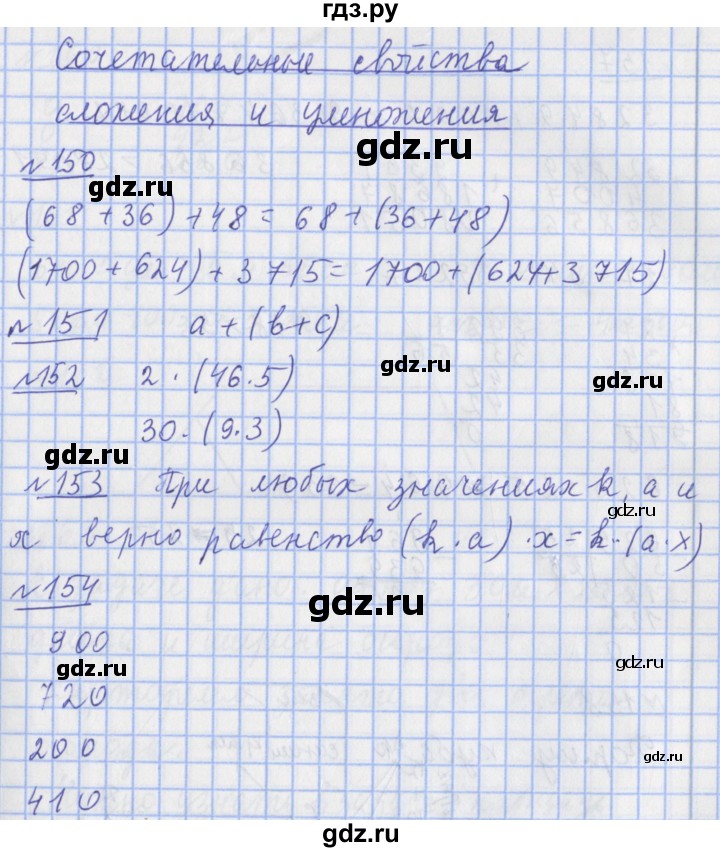 гдз.ру
Сочетательные свойства
сложения и умножения
gdz.ru
№150
gdz.ru
(68+36)+48=68+(36+48)
(1700+624)+3715=1700+(624+3715)
№151 a+(b+c)
gdz.ru
№152 2·(46·5)
gdz.ru
30·(9·3)
gdz.ru
№153 При любых значениях k, a и
gdz.ru
x верно равенство (k·a)·x=k·(a·x)
№154
gdz.ru
900
gdz.ru
gdz.ru
720
200
gdz.ru
gdz.ru
410
gdz.ru
gdz.ru